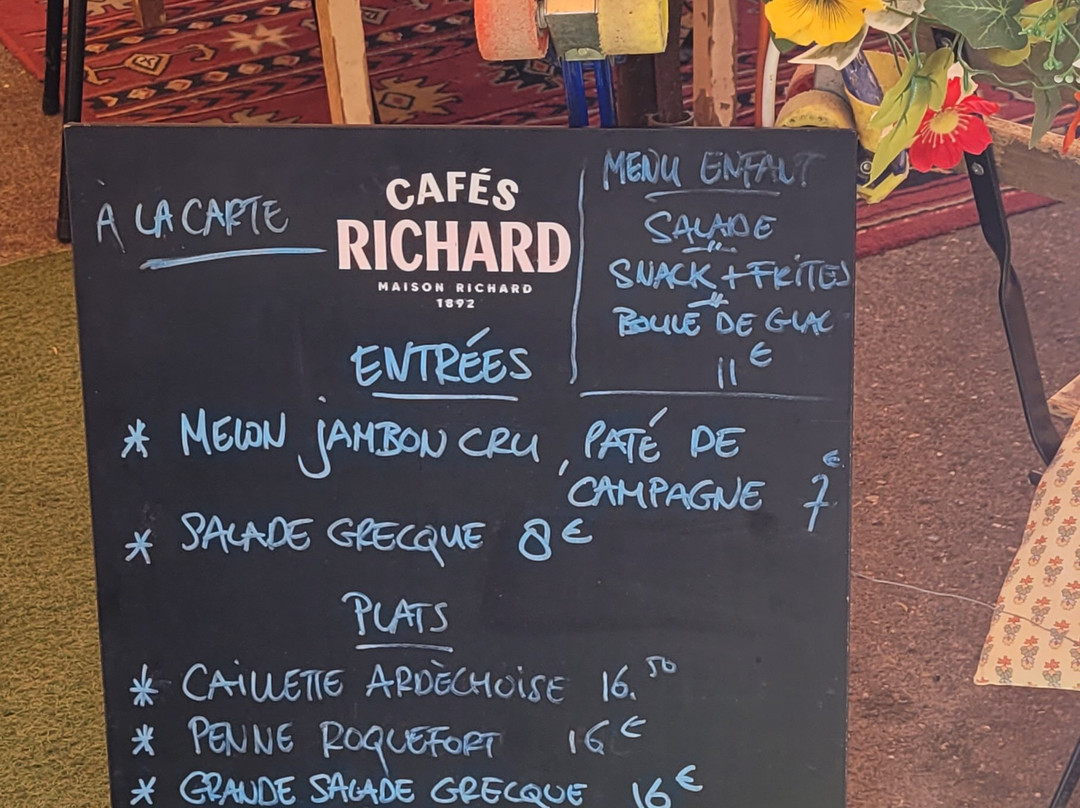 À LA CARTE
CAFÉS
RICHARD
MAISON RICHARD
1892
MENU ENFANT
SALADE
SNACK + FRITES
BOULE DE GLAC
11€
ENTRÉES
* MELON JAMBON CRU, PATÉ DE
CAMPAGNE 7€
* SALADE GRECQUE 8€
PLATS
* CAILLETTE ARDÈCHOISE 16.50
* PENNE ROQUEFORT 16€
* GRANDE SALADE GRECQUE 16€